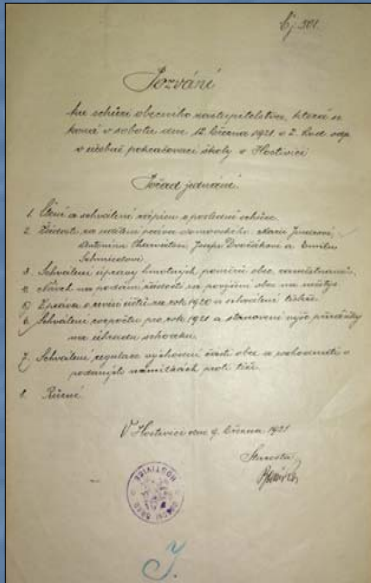 Čj. 301.
Pozvání
ku schůzi obecního zastupitelstva, která se
koná v sobotu dne 12. března 1921 o 2. hod. odp.
v učebně pokračovací školy v Hostivici
Pořad jednání.
1. Čtení a schválení zápisu o poslední schůzi.
2. Žádosti za udělení práva domovského Marie
Antonína Josefa Dvořáka a Emilie
3. Schválení úpravy hmotných poměrů obec. zaměstnanců.
4. Návrh na podání žádosti za povýšení obce na městys.
5. Zpráva o revisi účtů za rok 1920 a schválení těchže.
6. Schválení rozpočtu pro rok 1921 a stanovení výše přirážky
na úhradu schodku.
7. Schválení regulace východní části obce a rozhodnutí o
podaných námitkách proti téže.
8. Různé.
V Hostivici dne 9. března 1921
Starosta
HOSTIVICE